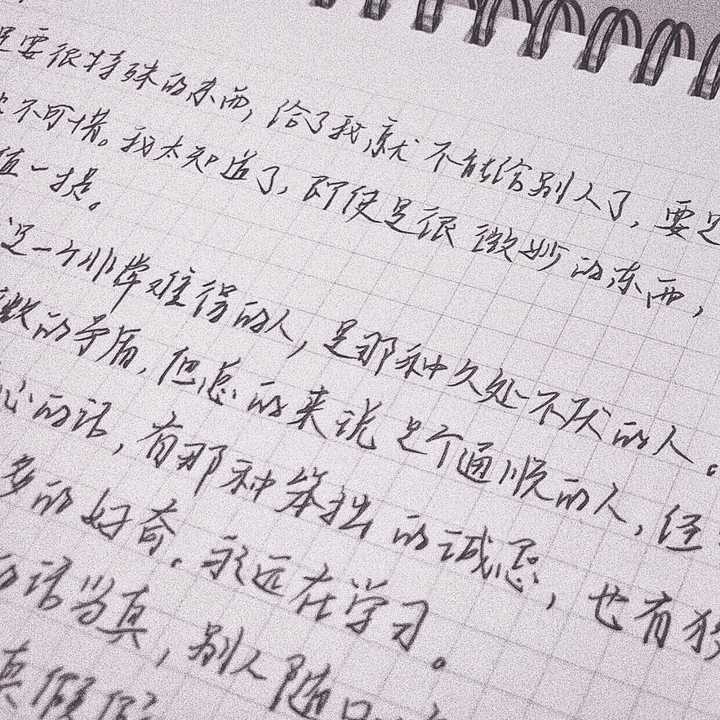 要很特殊的东西，给了我，就不能给别人了，要是
不可惜。我太知道了，即使是很微妙的东西，
值一提。
是一个非常难得的人，是那种久处不厌的人。
的矛盾，但总的来说是个通顺的人，经
心的话，有那种笨拙的诚恳，也有
多的好奇。永远在学习。
话当真，别人随口
真假假